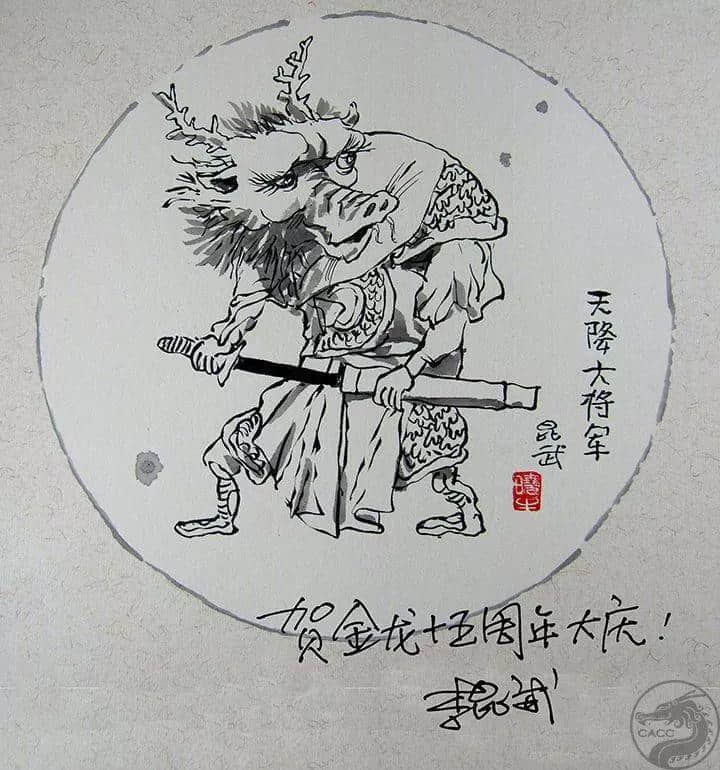 天降大将军
昆武
贺金龙十五周年大庆！
李昆武
CACC